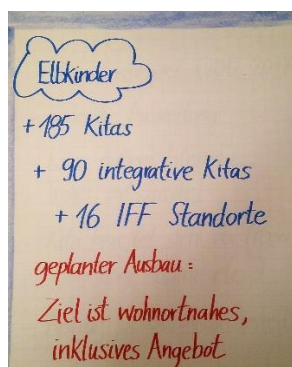 Elbkinder
+ 185 Kitas
+ 90 integrative Kitas
+ 16 IFF Standorte
geplanter Ausbau:
Ziel ist wohnortnahes,
inklusives Angebot